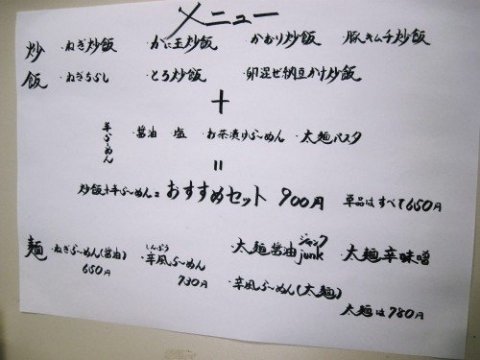 メニュー
炒飯 ・ねぎ炒飯 ・かに玉炒飯 ・かおり炒飯 ・豚キムチ炒飯
・ねぎちらし ・とろ炒飯 ・卵混ぜ納豆かけ炒飯
+
半らーめん ・醤油 ・塩 ・お茶漬けらーめん ・太麺パスタ
=
炒飯+半らーめん= おすすめセット 900円 単品はすべて650円
麺 ・ねぎらーめん(醤油) ・辛風らーめん ・太麺醤油junk ・太麺辛味噌
しんぷう ジャンク
650円 730円 ・辛風らーめん(太麺)
太麺は780円